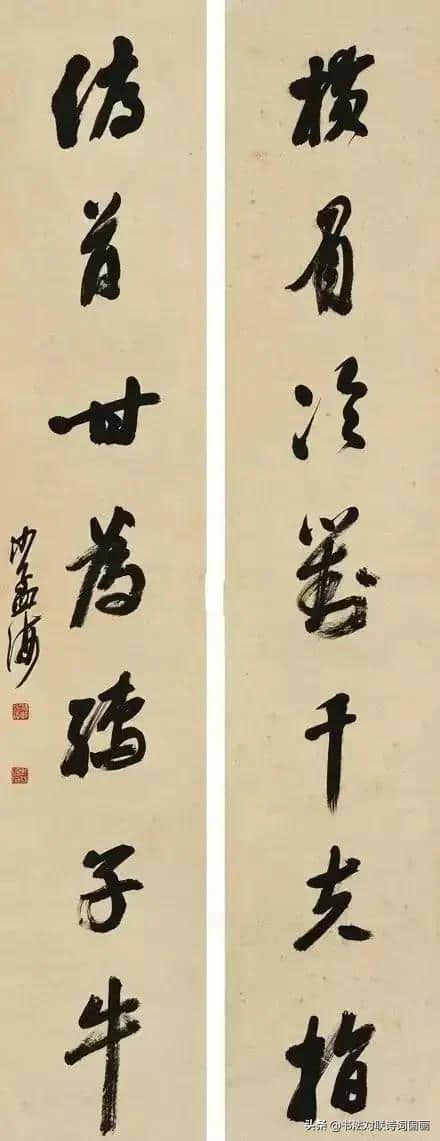 横眉冷對千夫指
俯首甘為孺子牛
沙孟海
头条 @书法对联诗词国画